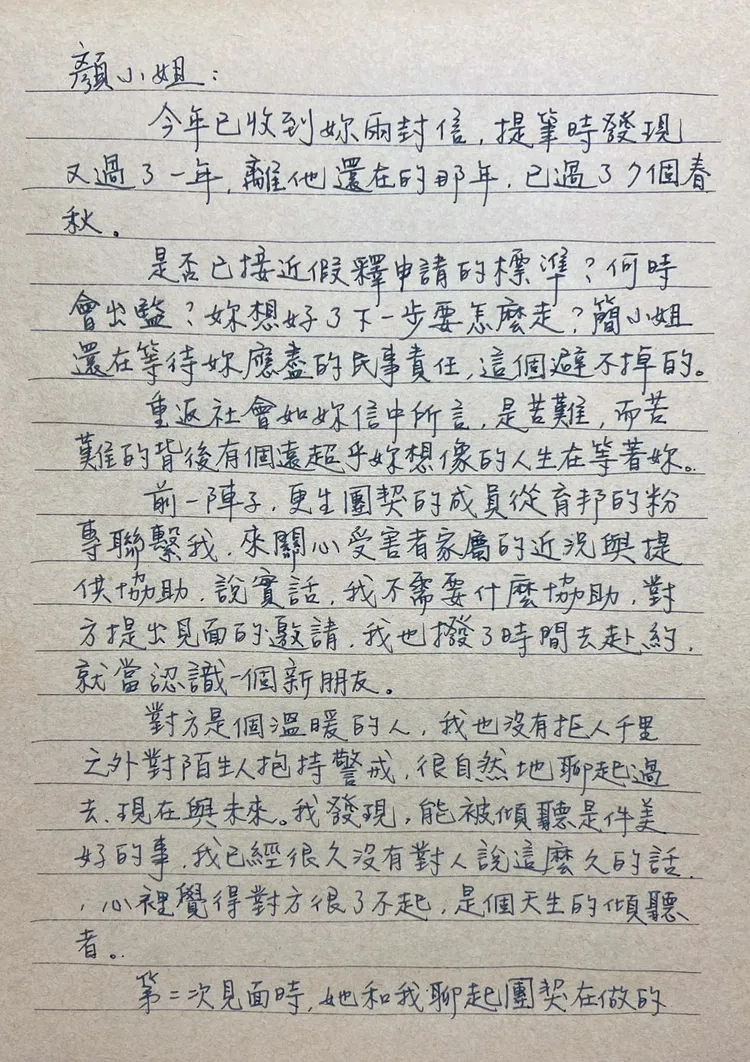 顏小姐：
今年已收到妳兩封信，提筆時發現
又過了一年，離他還在的那年，已過了7個春
秋。
是否已接近假釋申請的標準？何時
會出監？妳想好了下一步要怎麼走？簡小姐
還在等待妳應盡的民事責任，這個避不掉的。
重返社會如妳信中所言，是苦難，而苦
難的背後有個遠超乎妳想像的人生在等著妳。
前一陣子，更生團契的成員從育邦的粉
專聯繫我，來關心受害者家屬的近況與提
供協助，說實話，我不需要什麼協助，對
方提出見面的邀請，我也撥了時間去赴約，
就當認識一個新朋友。
對方是個溫暖的人，我也沒有拒人千里
之外對陌生人抱持警戒，很自然地聊起過
去、現在與未來。我發現，能被傾聽是件美
好的事，我已經很久沒有對人說這麼久的話，
，心裡覺得對方很了不起，是個天生的傾聽
者。
第二次見面時，她和我聊起團契在做的